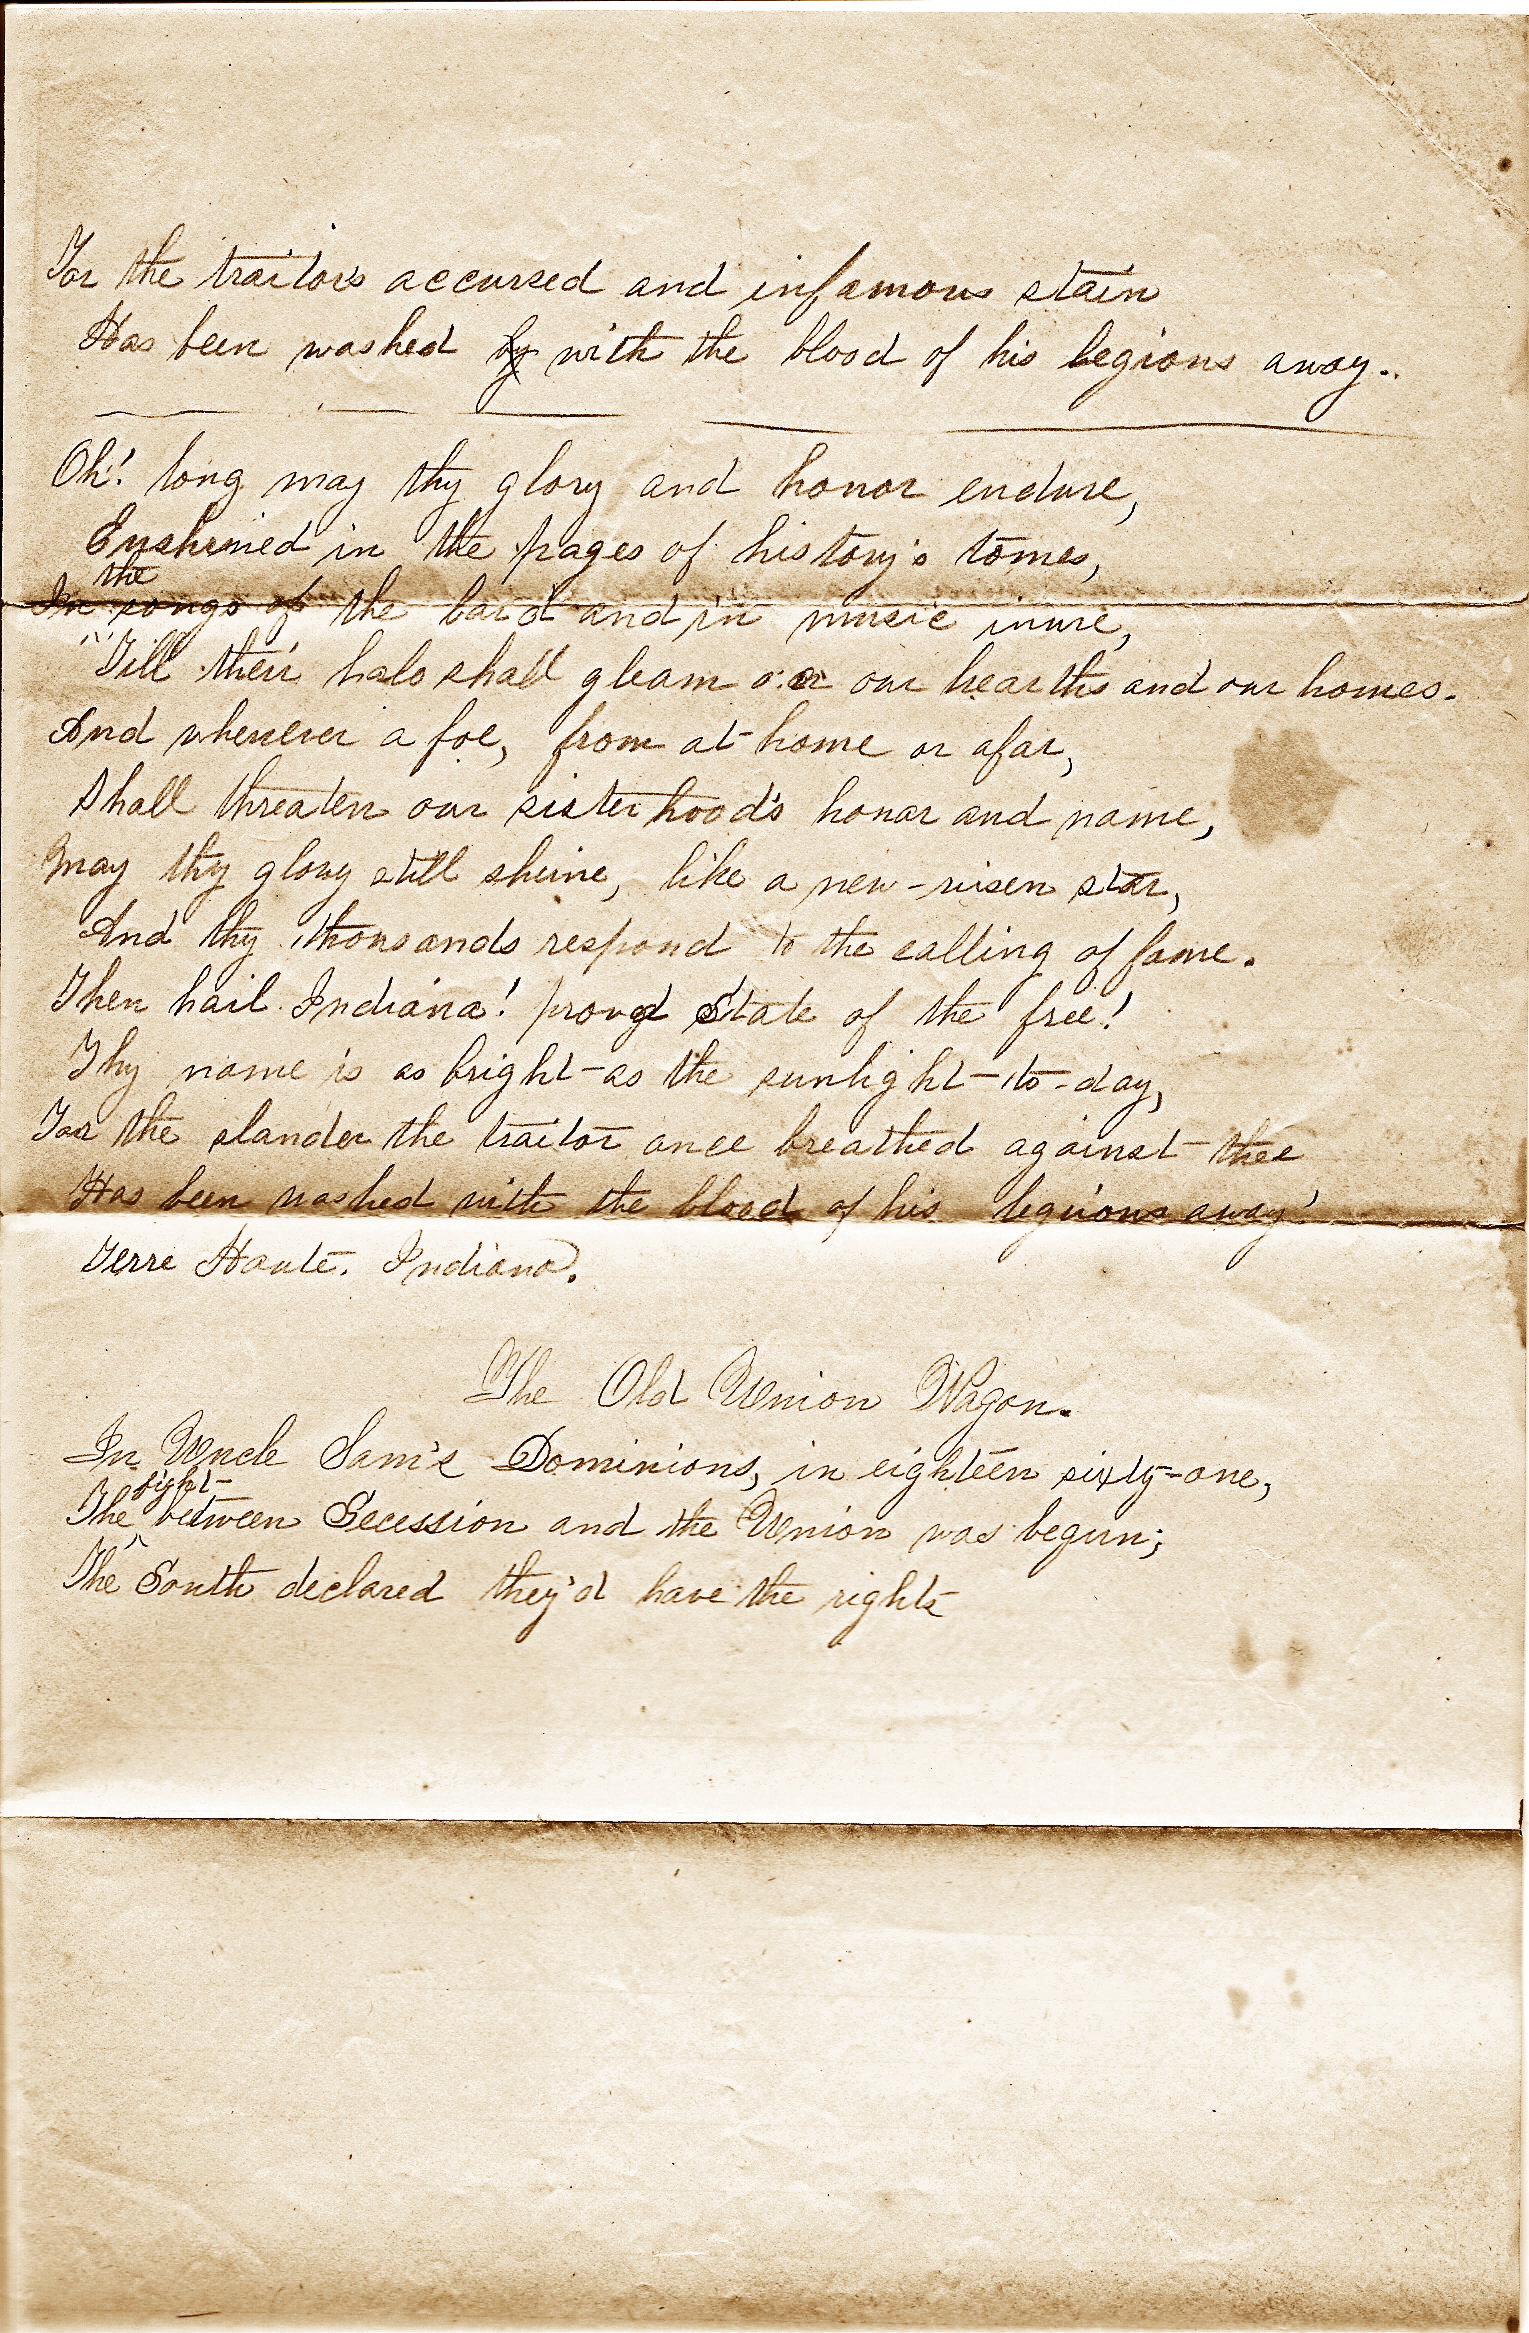 For the traitor's accursed and infamous stain
Has been washed by with the blood of his legions away.
Oh! long may thy glory and honor endure,
Enshrined in the pages of history's tomes,
In the songs of the bard and in music inure,
"Till their halo shall gleam o'er our hearths and our homes.
And whenever a foe, from at home or afar,
Shall threaten our sisterhood's honor and name,
May thy glory still shine, like a new-risen star,
And thy thousands respond to the calling of fame.
Then hail Indiana! proud State of the free!
Thy name is as bright as the sunlight to-day,
For the slander the traitor once breathed against thee
Has been washed with the blood of his legions away!
Terre Haute. Indiana.
The Old Union Wagon.
In Uncle Sam's Dominions, in eighteen sixty-one,
The fight between Secession and the Union was begun;
The South declared they'd have the rights